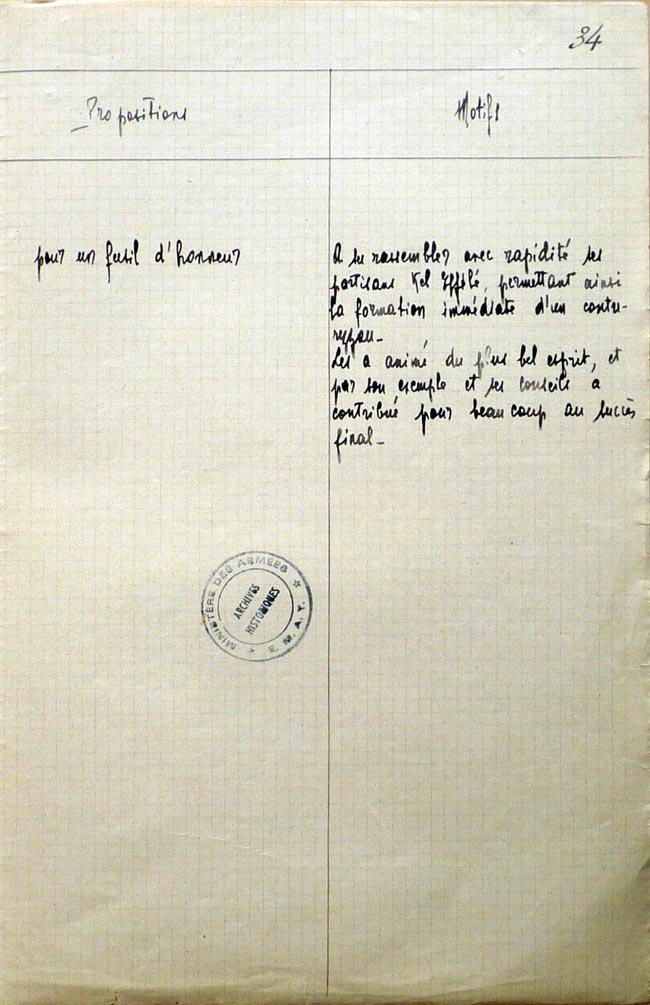 34
Propositions
Motifs
pour un fusil d'honneur
A su rassembler avec rapidité ses
partisans Kel Effélé, permettant ainsi
la formation immédiate d'un contre-
rezzou_
Les a animé du plus bel esprit, et
par son exemple et ses conseils a
contribué pour beaucoup au succès
final_
MINISTÈRE DES ARMÉES
E. M. A. T.
ARCHIVES
HISTORIQUES